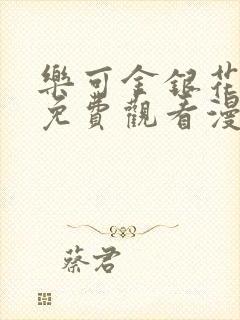 樂可金銀花
免費觀看漫
蔡君